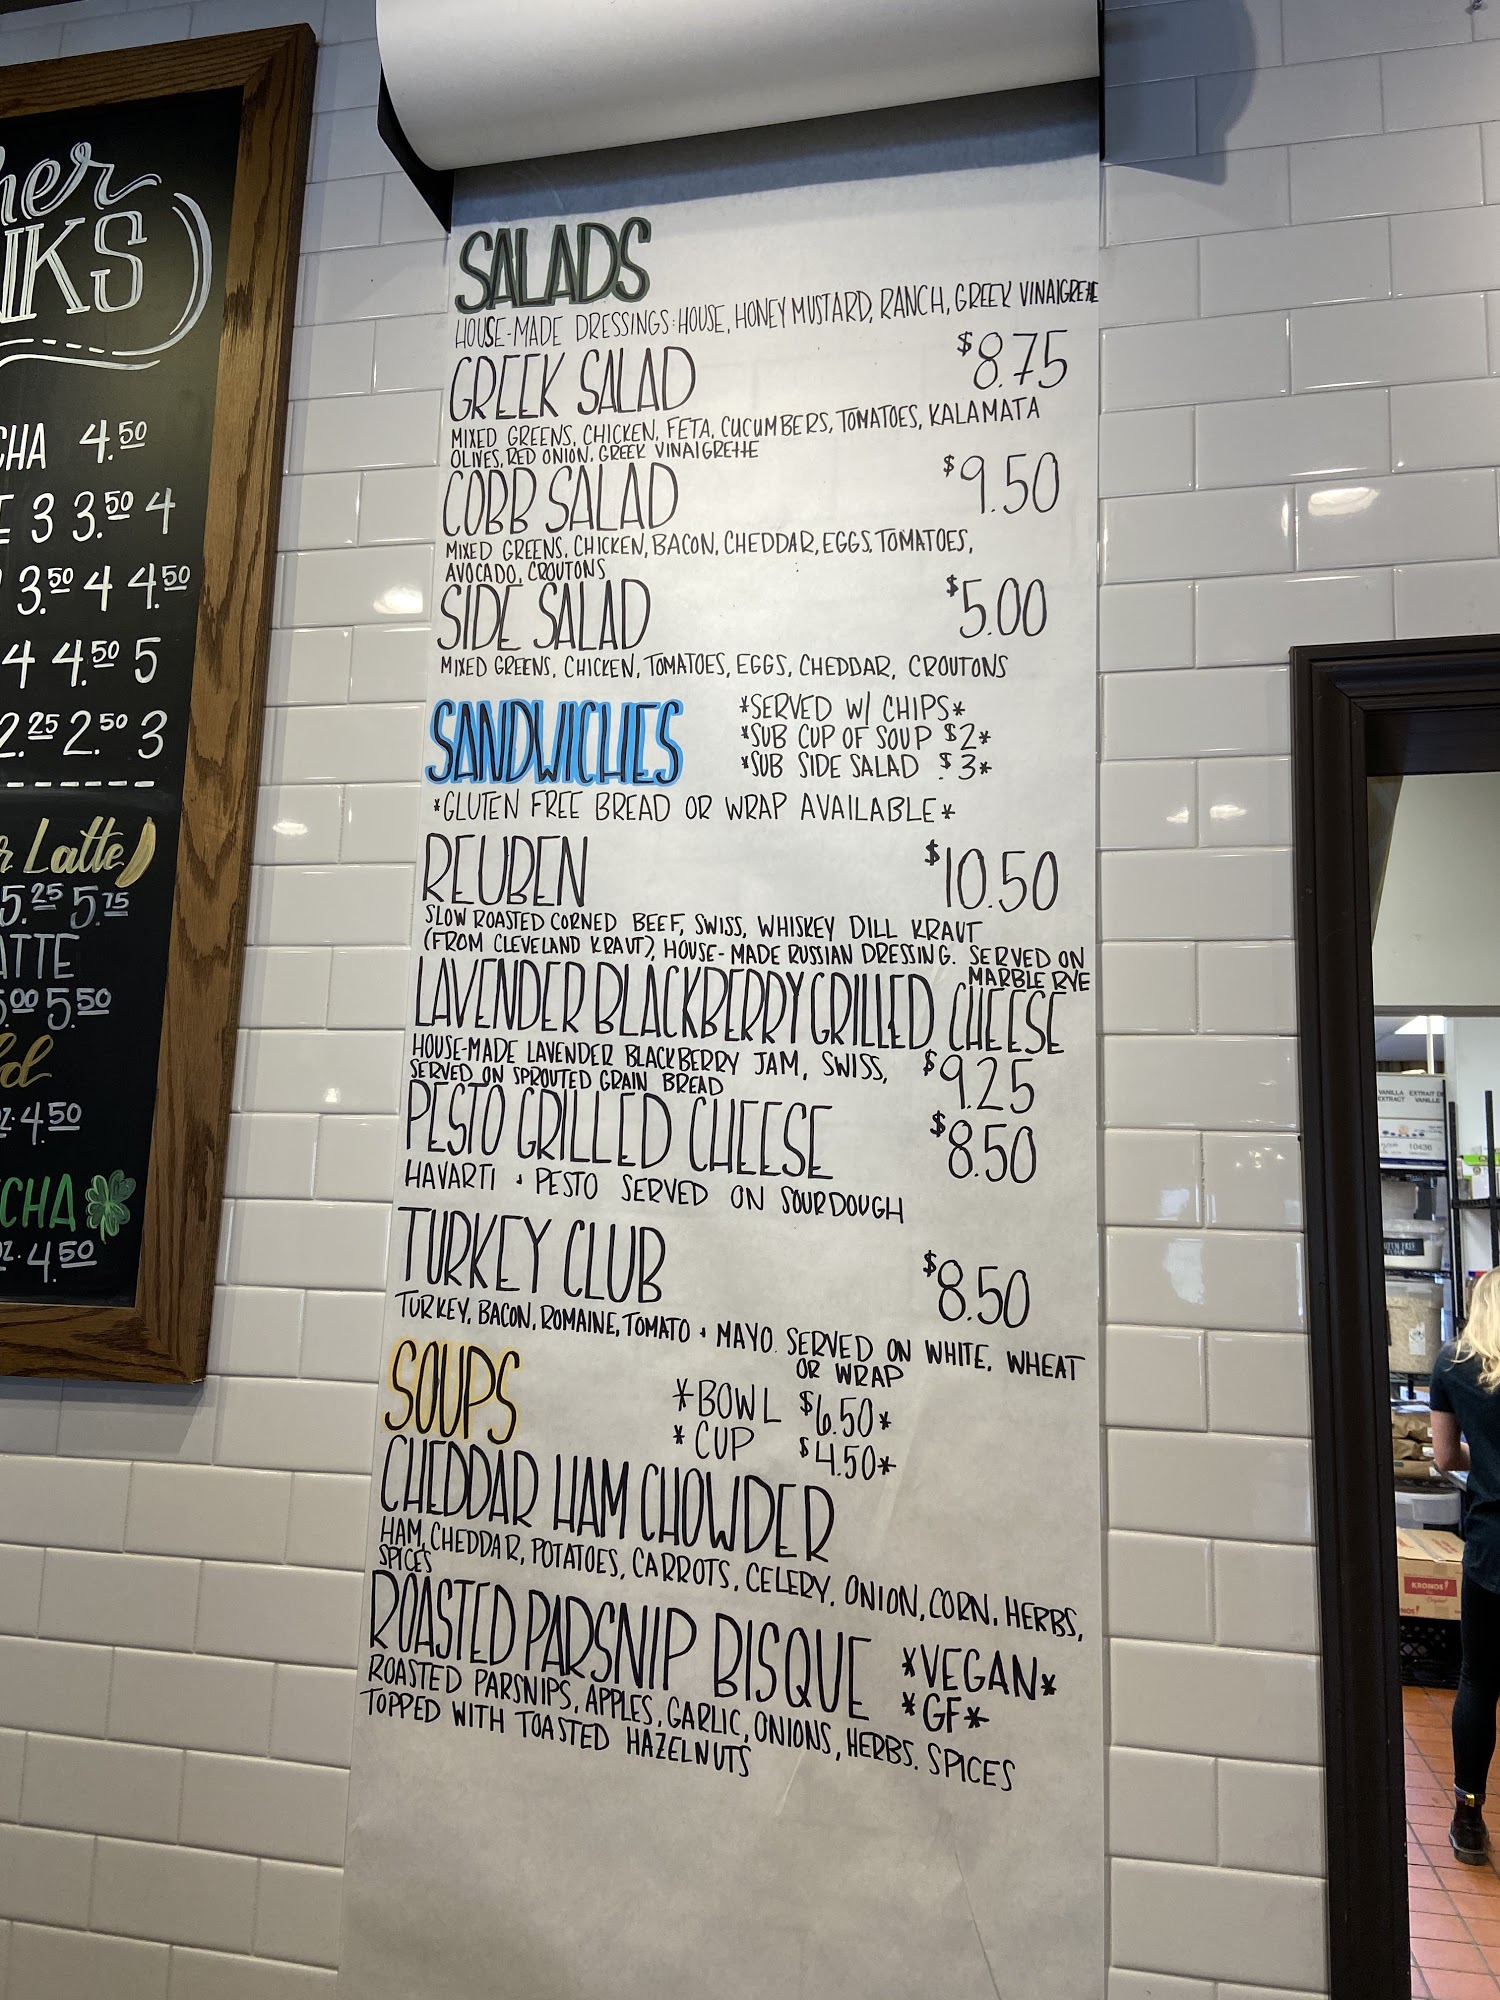 NKS
4.50
3 3.50 4
3.50 4 4.50
4 4.50 5
2.25 2.50 3
Latte
5.25 5.75
5.50
4.50
4.50
SALADS
HOUSE-MADE DRESSINGS: HOUSE, HONEY MUSTARD, RANCH, GREEK VINAIGRETTE
GREEK SALAD $8.75
MIXED GREENS, CHICKEN, FETA, CUCUMBERS, TOMATOES, KALAMATA
OLIVES, RED ONION, GREEK VINAIGRETTE
COBB SALAD $9.50
MIXED GREENS, CHICKEN, BACON, CHEDDAR, EGGS, TOMATOES,
AVOCADO, CROUTONS
SIDE SALAD $5.00
MIXED GREENS, CHICKEN, TOMATOES, EGGS, CHEDDAR, CROUTONS
SANDWICHES
*SERVED W/ CHIPS*
*SUB CUP OF SOUP $2*
*SUB SIDE SALAD $3*
*GLUTEN FREE BREAD OR WRAP AVAILABLE*
REUBEN $10.50
SLOW ROASTED CORNED BEEF, SWISS, WHISKEY DILL KRAUT
(FROM CLEVELAND KRAUT), HOUSE-MADE RUSSIAN DRESSING. SERVED ON
MARBLE RYE
LAVENDER BLACKBERRY GRILLED CHEESE
HOUSE-MADE LAVENDER BLACKBERRY JAM, SWISS, $9.25
SERVED ON SPROUTED GRAIN BREAD
PESTO GRILLED CHEESE $8.50
HAVARTI + PESTO SERVED ON SOURDOUGH
TURKEY CLUB $8.50
TURKEY, BACON, ROMAINE, TOMATO + MAYO. SERVED ON WHITE, WHEAT
OR WRAP
SOUPS
*BOWL $6.50*
*CUP $4.50*
CHEDDAR HAM CHOWDER
HAM, CHEDDAR, POTATOES, CARROTS, CELERY, ONION, CORN, HERBS,
SPICES
ROASTED PARSNIP BISQUE *VEGAN*
*GF*
ROASTED PARSNIPS, APPLES, GARLIC, ONIONS, HERBS, SPICES
TOPPED WITH TOASTED HAZELNUTS
VANILLA EXTRACT
EXTRACT VANILLE
10436
KRONOS